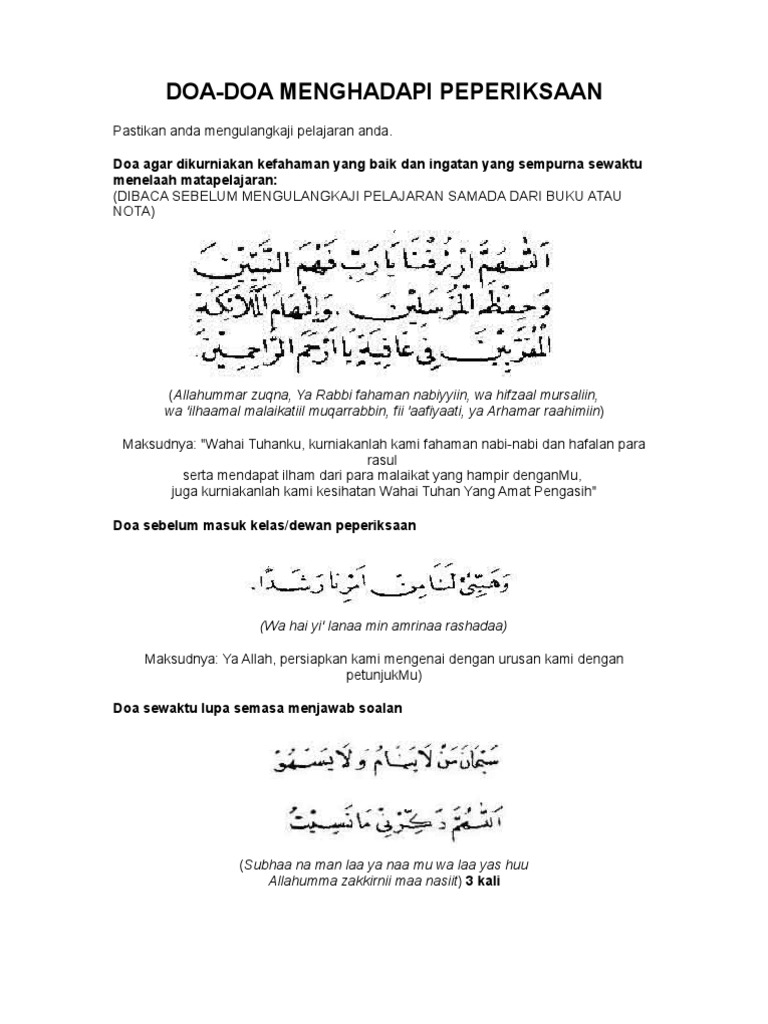 DOA-DOA MENGHADAPI PEPERIKSAAN
Pastikan anda mengulangkaji pelajaran anda.
Doa agar dikurniakan kefahaman yang baik dan ingatan yang sempurna sewaktu
menelaah matapelajaran:
(DIBACA SEBELUM MENGULANGKAJI PELAJARAN SAMADA DARI BUKU ATAU
NOTA)
اَللّٰهُمَّ ارْزُقْنَا يَا رَبِّ فَهْمَ النَّبِيِّيْنَ
وَحِفْظَ الْمُرْسَلِيْنَ . وَاِلْهَامَ الْمَلَائِكَةِ
الْمُقَرَّبِيْنَ فِي عَافِيَةٍ يَا اَرْحَمَ الرَّاحِمِيْنَ.
(Allahummar zuqna, Ya Rabbi fahaman nabiyyiin, wa hifzaal mursaliin,
wa 'ilhaamal malaikatiil muqarrabbin, fii 'aafiyaati, ya Arhamar raahimiin)
Maksudnya: "Wahai Tuhanku, kurniakanlah kami fahaman nabi-nabi dan hafalan para
rasul
serta mendapat ilham dari para malaikat yang hampir denganMu,
juga kurniakanlah kami kesihatan Wahai Tuhan Yang Amat Pengasih"
Doa sebelum masuk kelas/dewan peperiksaan
وَهَيِّئْ لَنَا مِنْ اَمْرِنَا رَشَدًا.
(Wa hai yi' lanaa min amrinaa rashadaa)
Maksudnya: Ya Allah, persiapkan kami mengenai dengan urusan kami dengan
petunjukMu)
Doa sewaktu lupa semasa menjawab soalan
سُبْحَانَ مَنْ لَا يَنَامُ وَلَا يَسْهُوْ
اَللّٰهُمَّ ذَكِّرْنِيْ مَا نَسِيْتُ
(Subhaa na man laa ya naa mu wa laa yas huu
Allahumma zakkirnii maa nasiit) 3 kali